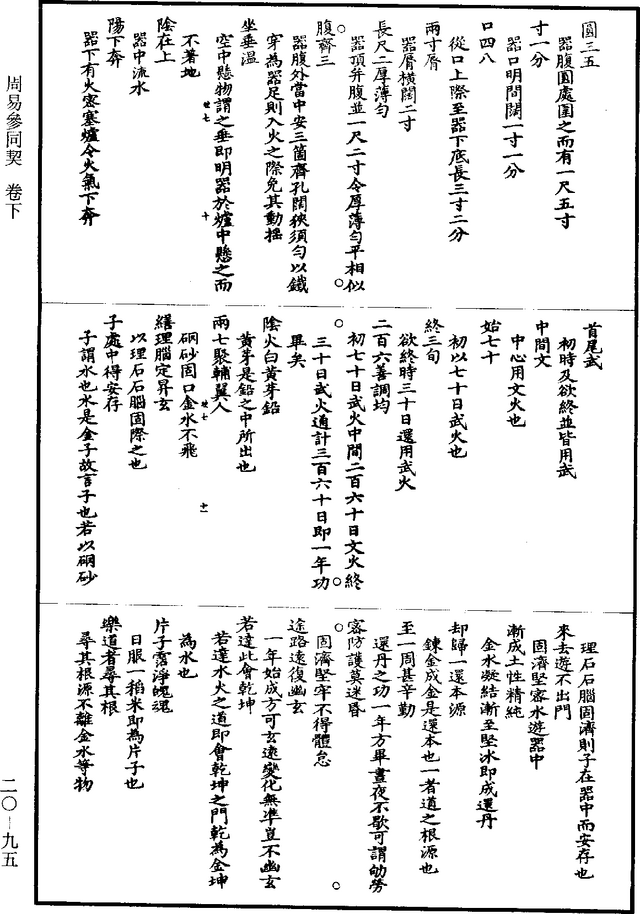 圓三五
器腹圓處圍之而有一尺五寸
寸一分
器口明間闊一寸一分
口四八
從口上際至器下底長三寸二分
兩寸脣
器脣橫闊二寸
長尺二厚薄勻
器頂并腹並一尺二寸令厚薄勻平相似
腹齊三
器腹外當中安三箇齊孔闊狹須勻以鐵
穿為器足則入火之際免其動搖
坐垂溫
空中懸物謂之垂即明器於爐中懸之而
不著地
陰在上
器中流水
陽下奔
器下有火密塞爐令火氣下奔
首尾武
初時及欲終並皆用武
中間文
中心用文火也
始七十
初以七十日武火也
終三旬
欲終時三十日還用武火
二百六善調均
初七十日武火中間二百六十日文火終
三十日武火通計三百六十日即一年功
畢矣
陰火白黃芽鉛
黃芽是鉛之中所出也
兩七聚輔翼人
硇砂固口金水不飛
繕理腦定昇玄
以理石石腦固際之也
子處中得安存
子謂水也水是金子故言子也若以硇砂
理石石腦固濟則子在器中而安存也
來去遊不出門
固濟堅密水遊器中
漸成土性精純
金水凝結漸至堅冰即成還丹
却歸一還本源
鍊金成金是還本也一者道之根源也
至一周甚辛勤
還丹之功一年方畢晝夜不歇可謂劬勞
密防護莫迷昏
固濟堅牢不得體怠
途路遠復幽玄
一年始成方可玄遠變化無準豈不幽玄
若達此會乾坤
若達水火之道即會乾坤之門乾為金坤
為水也
片子霑淨魄魂
日服一稻米即為片子也
樂道者尋其根
尋其根源不離金水等物
周易參同契　卷下
二〇—九五